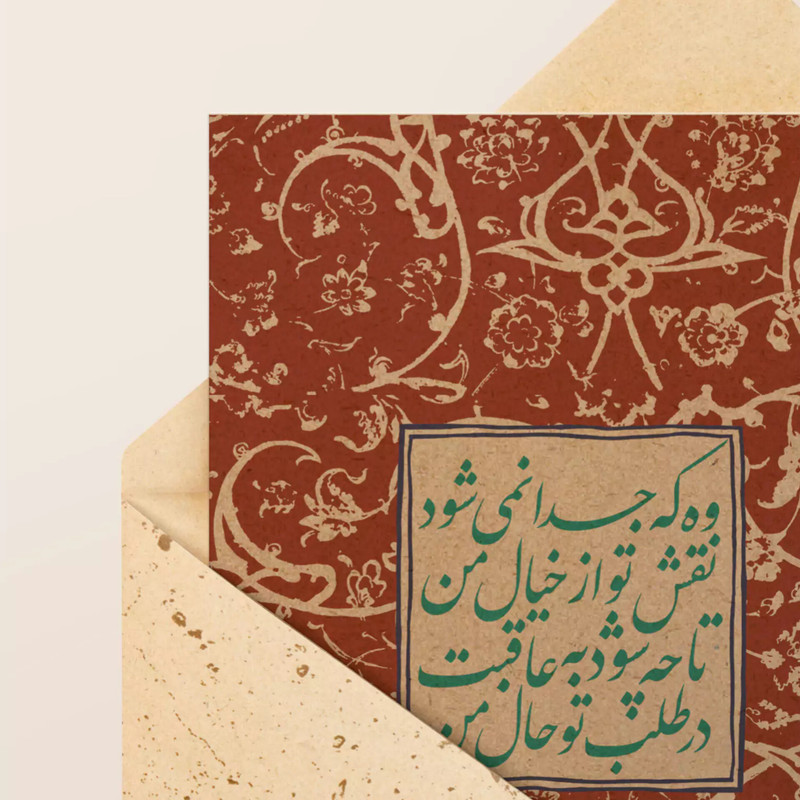 وه که جدا نمی‌شود
نقش تو از خیال من
تا چه شود به عاقبت
در طلب تو حال من